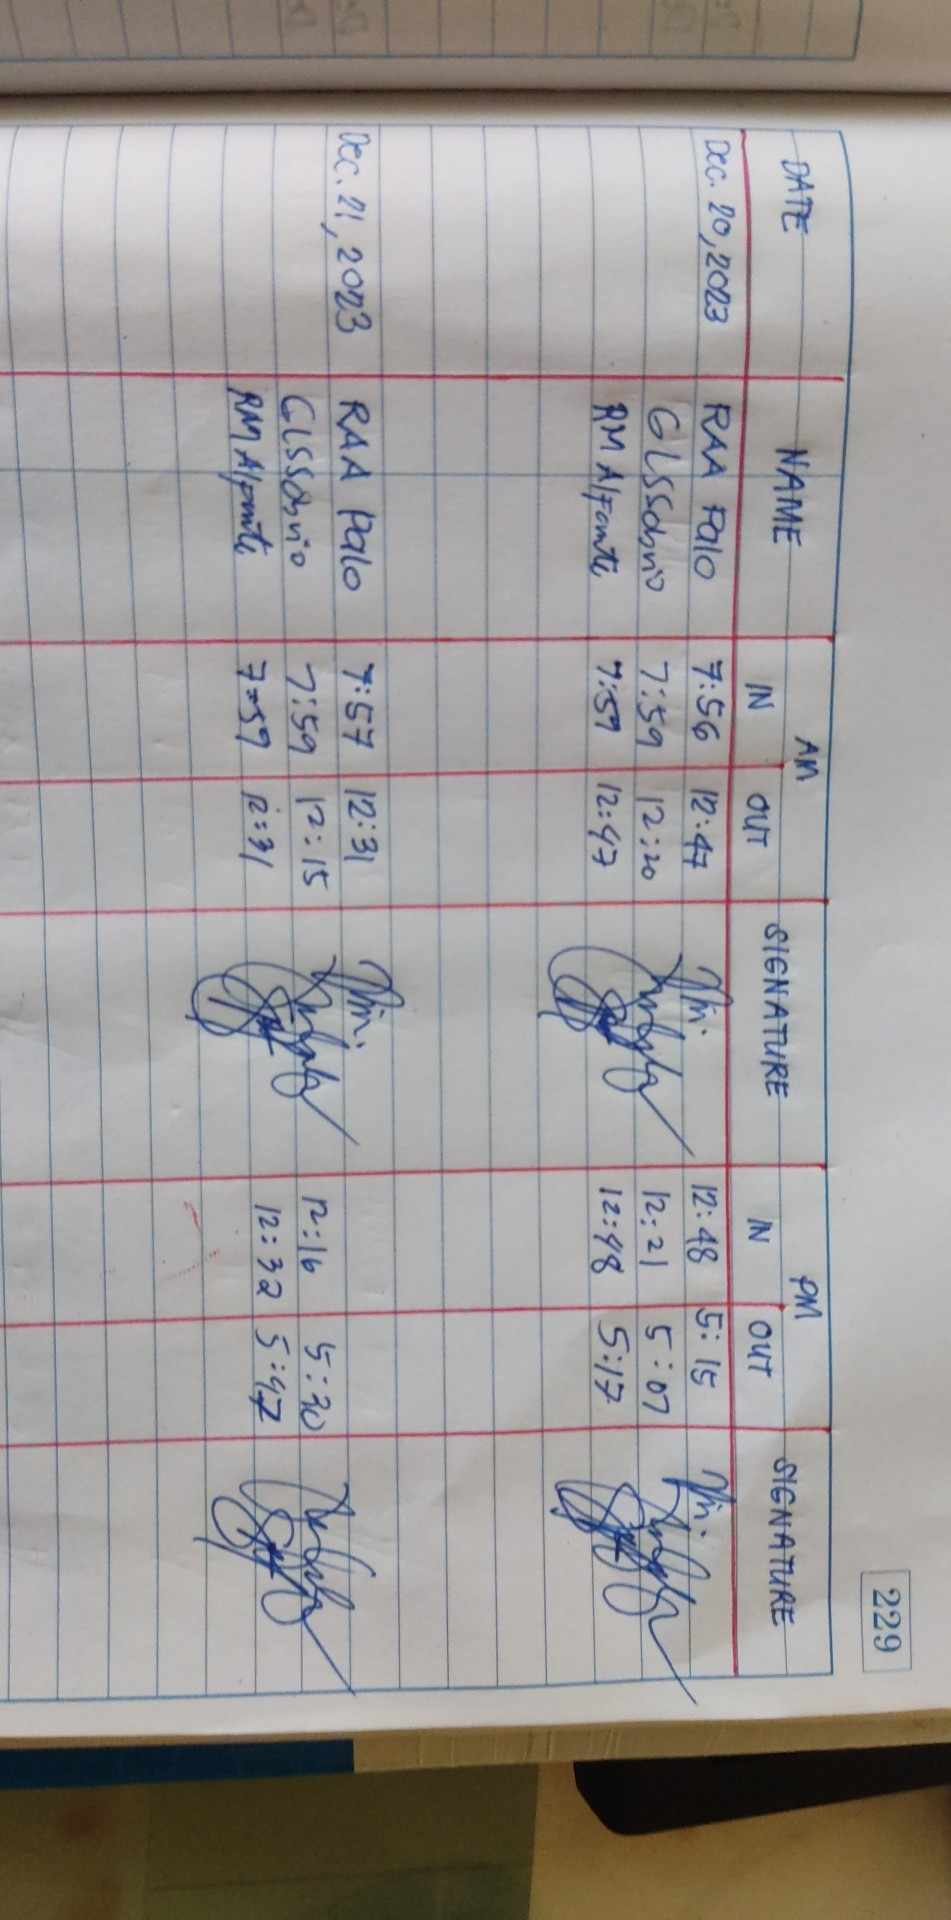 229
DATE NAME AM SIGNATURE PM SIGNATURE
IN OUT IN OUT
Dec. 20, 2023 RAA Palo 7:56 12:47 12:48 5:15
GLSSabrio 7:59 12:20 12:21 5:07
RM Alfonte 7:59 12:47 12:48 5:17
Dec. 21, 2023 RAA Palo 7:57 12:31
GLSSabrio 7:59 12:15 12:16 5:30
RM Alfonte 7:59 12:31 12:32 5:47